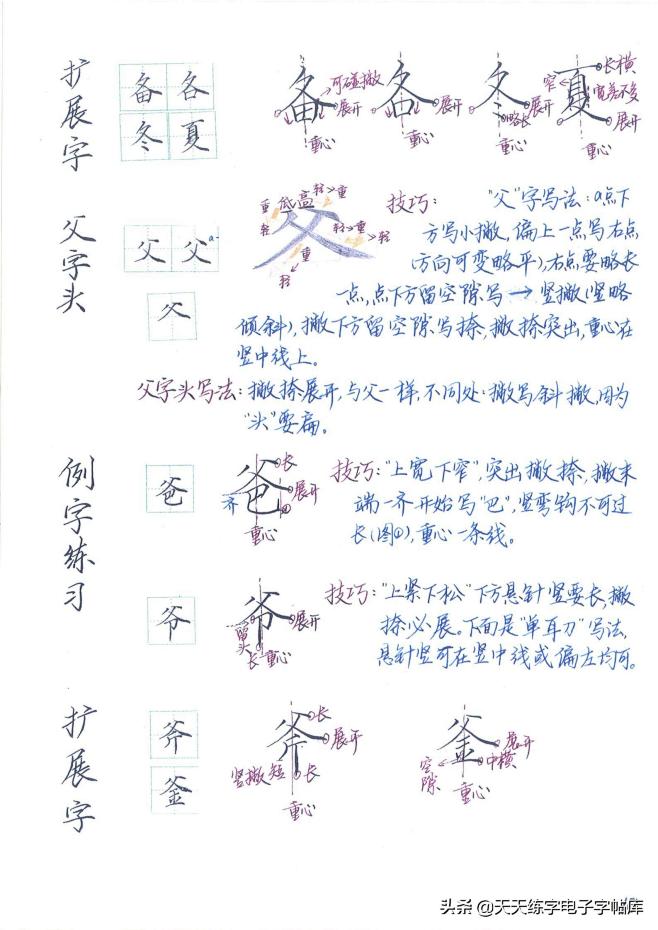 扩展字
备 各
冬 夏
备 可碰撇 展开 重心
各 展开 重心
冬 展开 略长 重心
夏 长横 窄 宽差不多 展开 重心
父字头
父 父a
父
父 重 低 高 轻 重 轻 轻 重 轻 重 轻
技巧："父"字写法：a点下
方写小撇，偏上一点写右点
(方向可变略平)，右点要略长
一点，点下方留空隙写→竖撇(竖略
倾斜)，撇下方留空隙写捺，撇捺突出，重心在
竖中线上。
父字头写法：撇捺展开，与父一样，不同处·撇写斜撇，因为
"头"要扁。
例字练习
爸
爸 长 展开 齐 ① 重心
技巧："上宽下窄"，突出撇捺，撇末
端一齐开始写"巴"，竖弯钩不可过
长(图①)，重心一条线。
爷
爷 展开 留头 长 重心
技巧："上紧下松"下方悬针竖要长，撇
捺必展。下面是"单耳刀"写法，
悬针竖可在竖中线或偏左均可。
扩展字
斧
釜
斧 长 展开 竖撇短 长 重心
釜 展开 中横 空隙 重心
头条 @天天练字电子字帖库